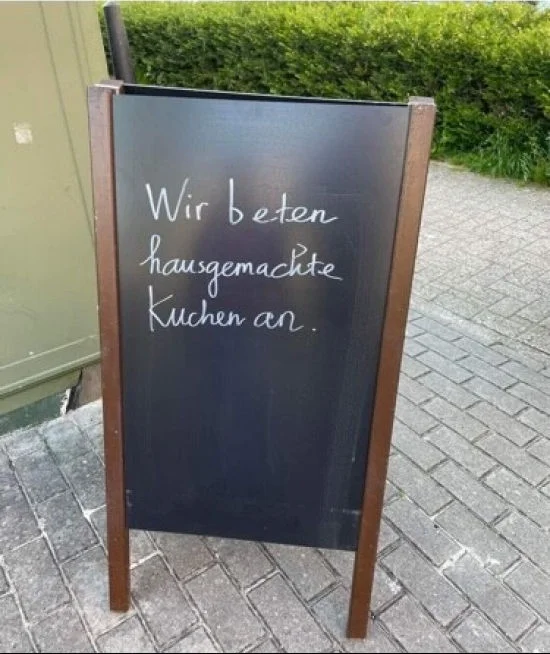 Wir beten
hausgemachte
Kuchen an.